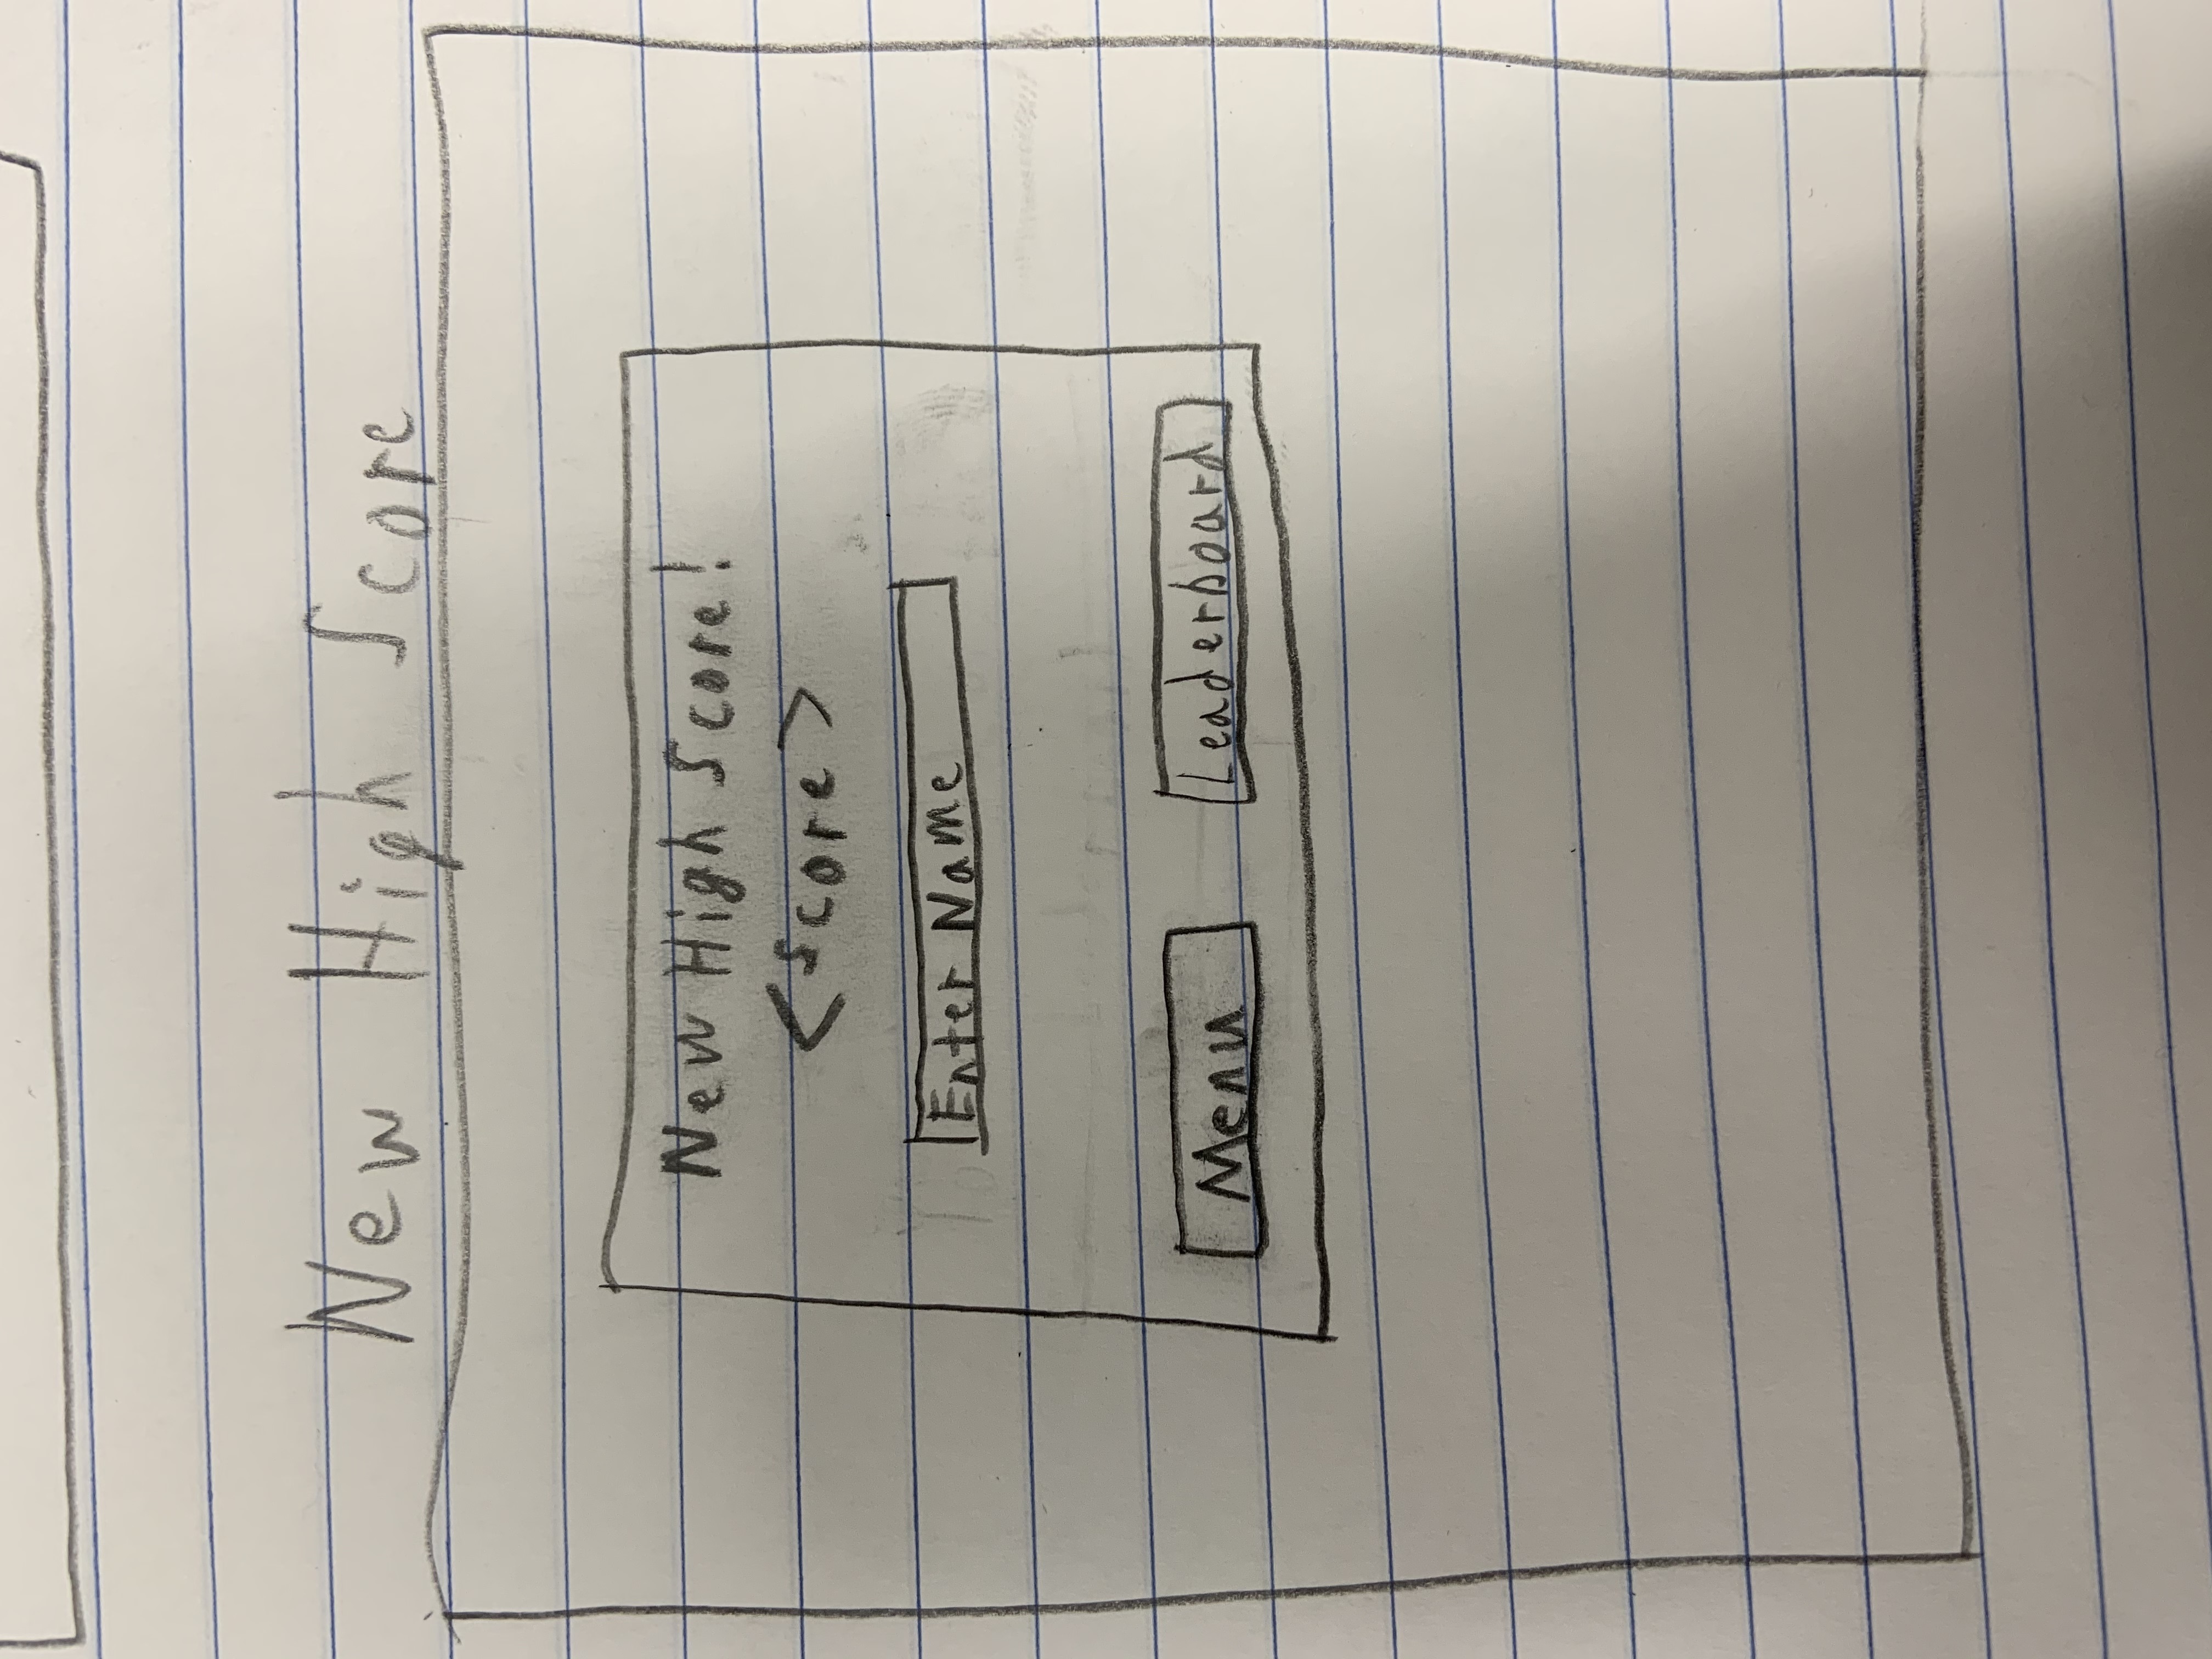 New High Score
New High Score!
<score>
Enter Name
Menu Leaderboard